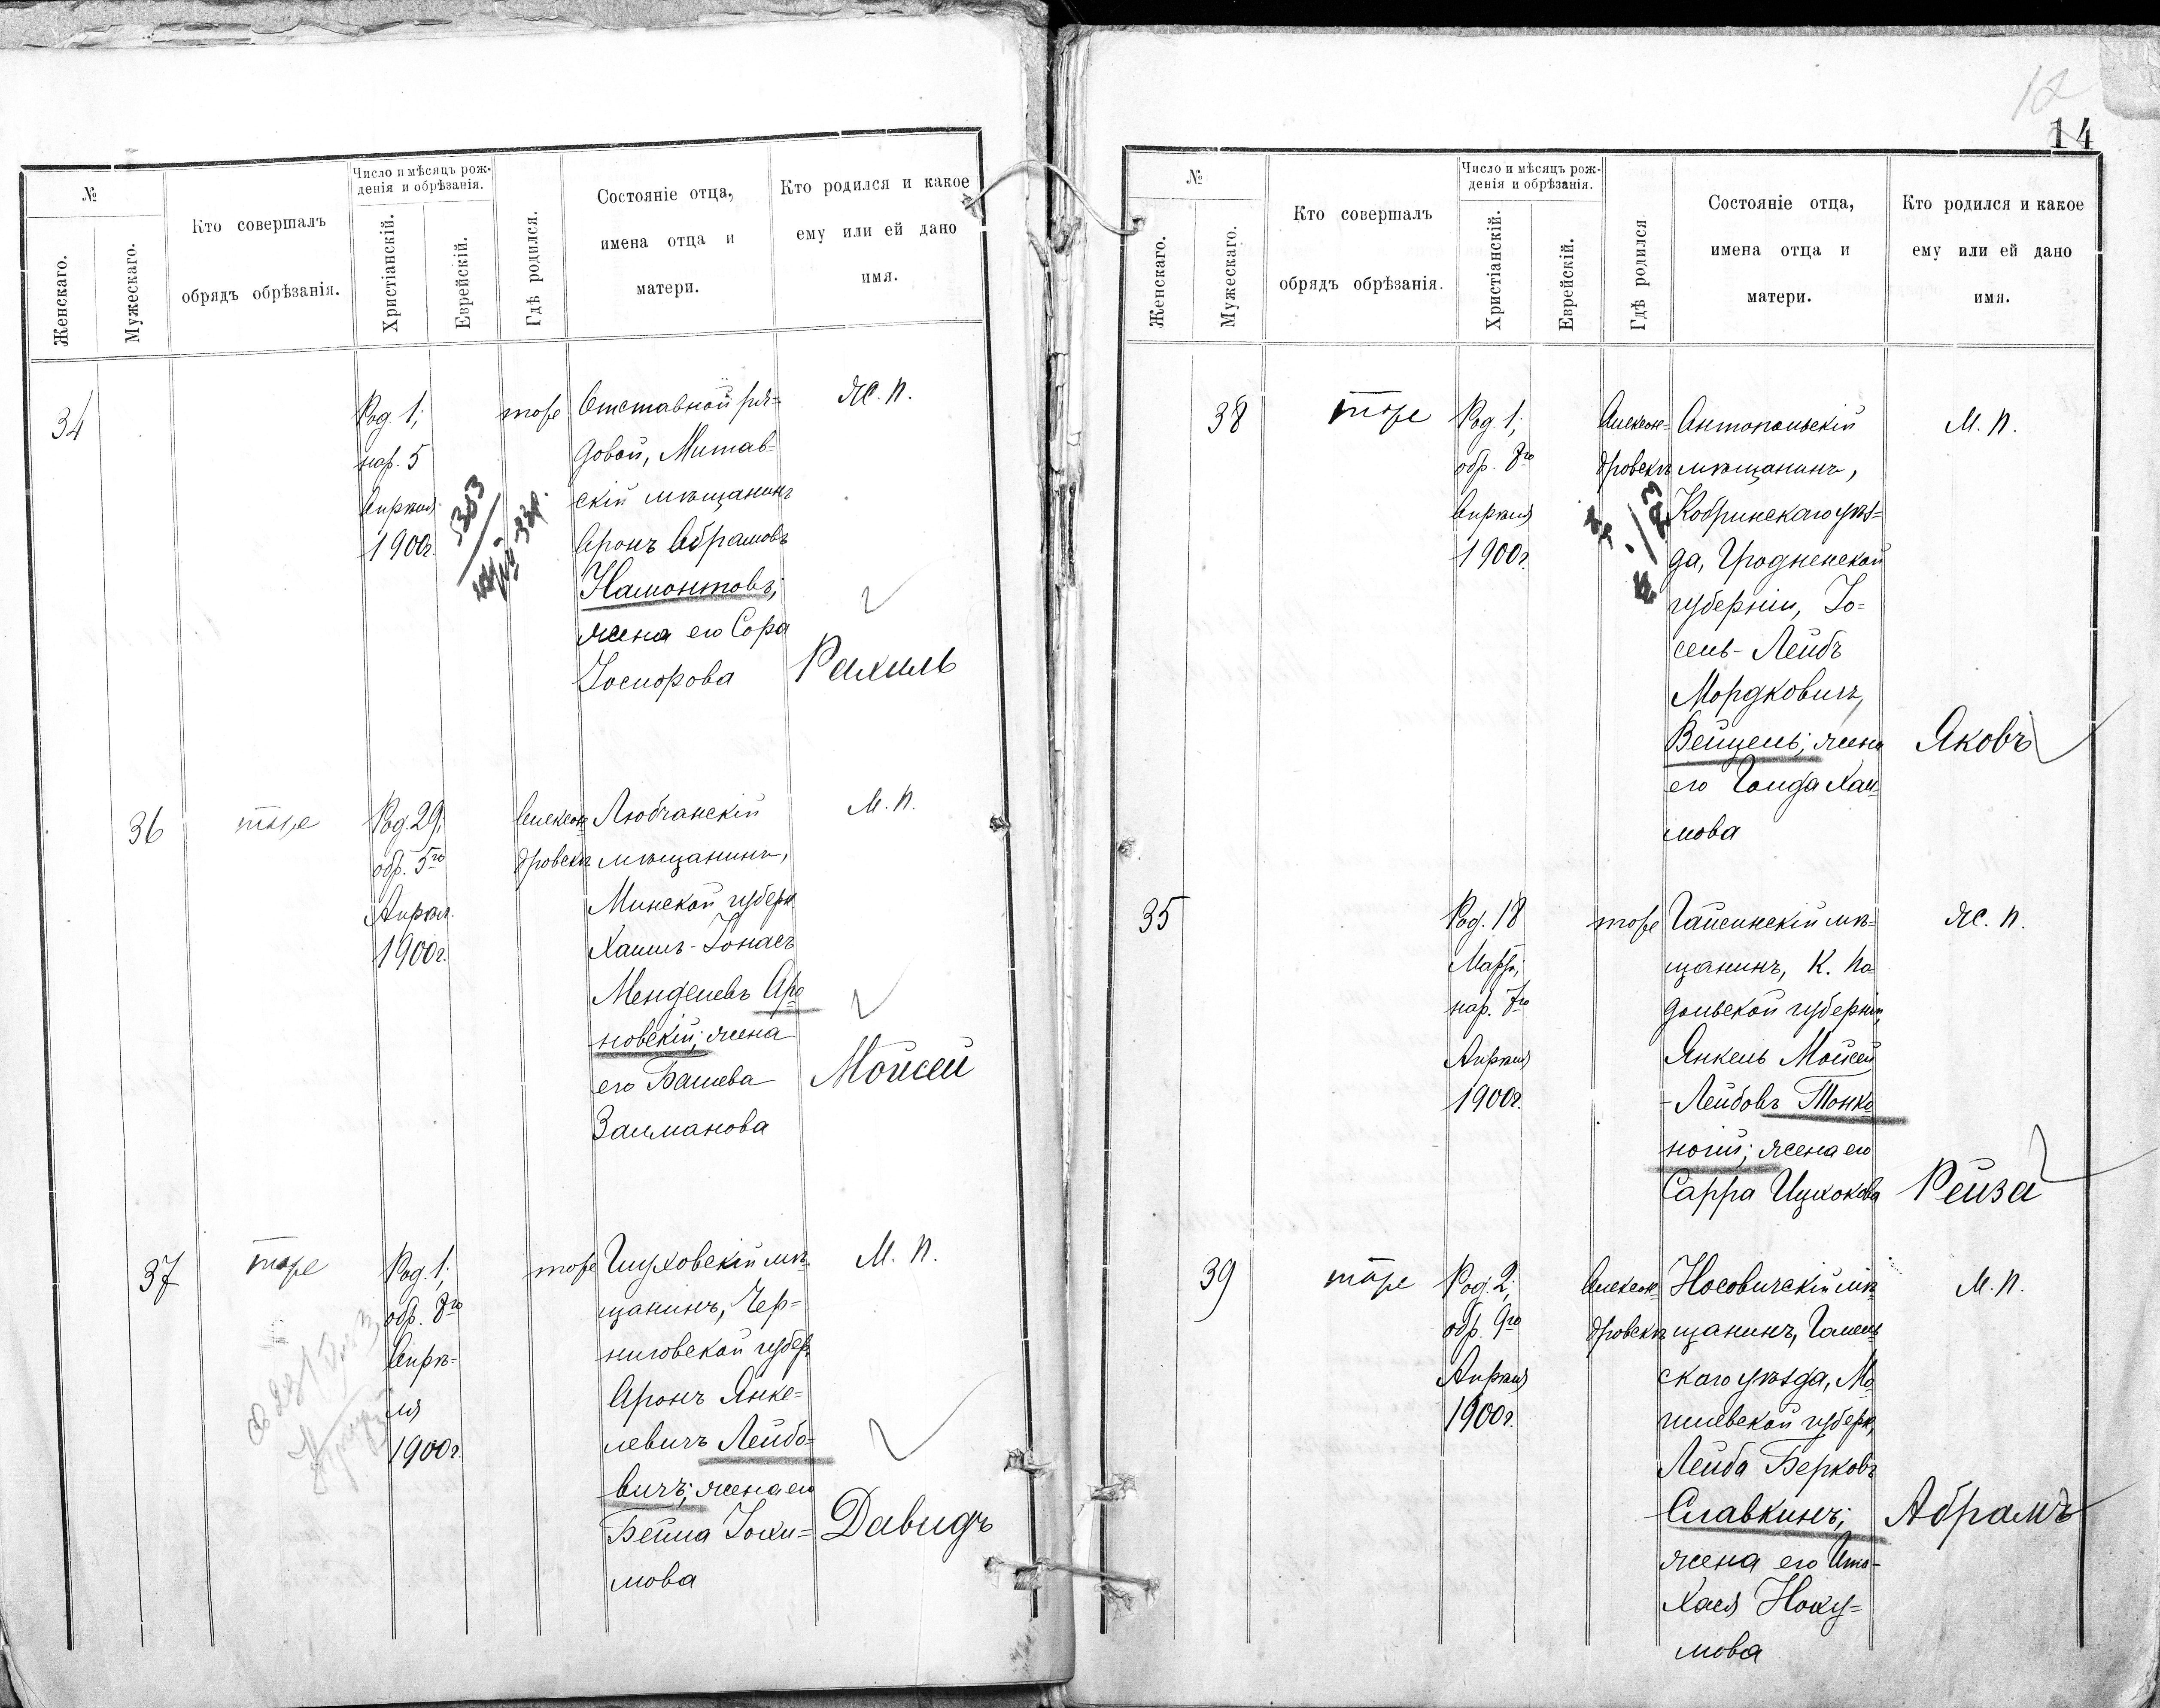 №
Женскаго.
Мужескаго.
Кто совершалъ
обрядъ обрѣзанія.
Число и мѣсяцъ рож-
денія и обрѣзанія.
Христіанскій.
Еврейскій.
Гдѣ родился.
Состояніе отца,
имена отца и
матери.
Кто родился и какое
ему или ей дано
имя.
34
Род. 1,
нар. 5
Апрѣля
1900г.
303
тоже
Отставной ря-
довой, Митав-
скій мѣщанинъ
Аронъ Абрамовъ
Намонтовъ;
жена его Сора
Іосифова
Ж. п.
Рахиль
36
тоже
Род. 29,
обр. 5го
Апрѣл.
1900г.
Алексан-
дровскъ
Любчанскій
мѣщанинъ,
Минской губерн.
Хаимъ-Іонасъ
Менделевъ Аро
новскій; жена
его Башева
Залманова
М. п.
Мойсей
37
тоже
Род. 1;
обр. 8го
Апрѣ-
ля
1900г.
тоже
Глуховскій мѣ-
щанинъ, Чер-
ниговской губер.
Аронъ Янке-
левичъ Лейбо-
вичъ; жена его
Бейла Хаи-
мова
М. п.
Давидъ
12
14
№
Женскаго.
Мужескаго.
Кто совершалъ
обрядъ обрѣзанія.
Число и мѣсяцъ рож-
денія и обрѣзанія.
Христіанскій.
Еврейскій.
Гдѣ родился
Состояніе отца,
имена отца и
матери.
Кто родился и какое
ему или ей дано
имя.
38
тоже
Род. 1;
обр. 8го
Апрѣля
1900г.
Алексан-
дровскъ
Антопольскій
мѣщанинъ,
Кобринскаго уѣз-
да, Гродненской
губерніи, Іо-
сель-Лейбъ
Мордковичъ,
Вейцель; жена
его Голда Хаи-
мова
М. п.
Яковъ
35
Род. 18
Марта,
нар. 7го
Апрѣля
1900г.
тоже
Гайсинскій мѣ-
щанинъ, К. По
дольской губерніи,
Янкель Мойсей
-Лейбовъ Тонко
ногій; жена его
Сарра Ицхокова
Ж. п.
Рейза
39
тоже
Род. 2;
обр. 9го
Апрѣля
1900г.
Алексан-
дровскъ
Носовичскій мѣ-
щанинъ, Гомель
скаго уѣзда, Мо
гилевской губерн.
Лейба Берковъ
Славкинъ;
жена его Ита-
Хася Наху-
мова
М. п.
Абрамъ